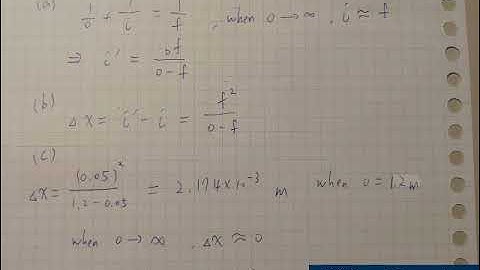 (a) 1/o + 1/i = 1/f , when o → ∞ , i ≈ f
⇒ i' = of/(o-f)
(b) ΔX = i' - i = f²/(o-f)
(c)
ΔX = (0.05)²/(1.2-0.05) = 2.174×10⁻³ m when o = 1.2m
when o → ∞ , ΔX ≈ 0